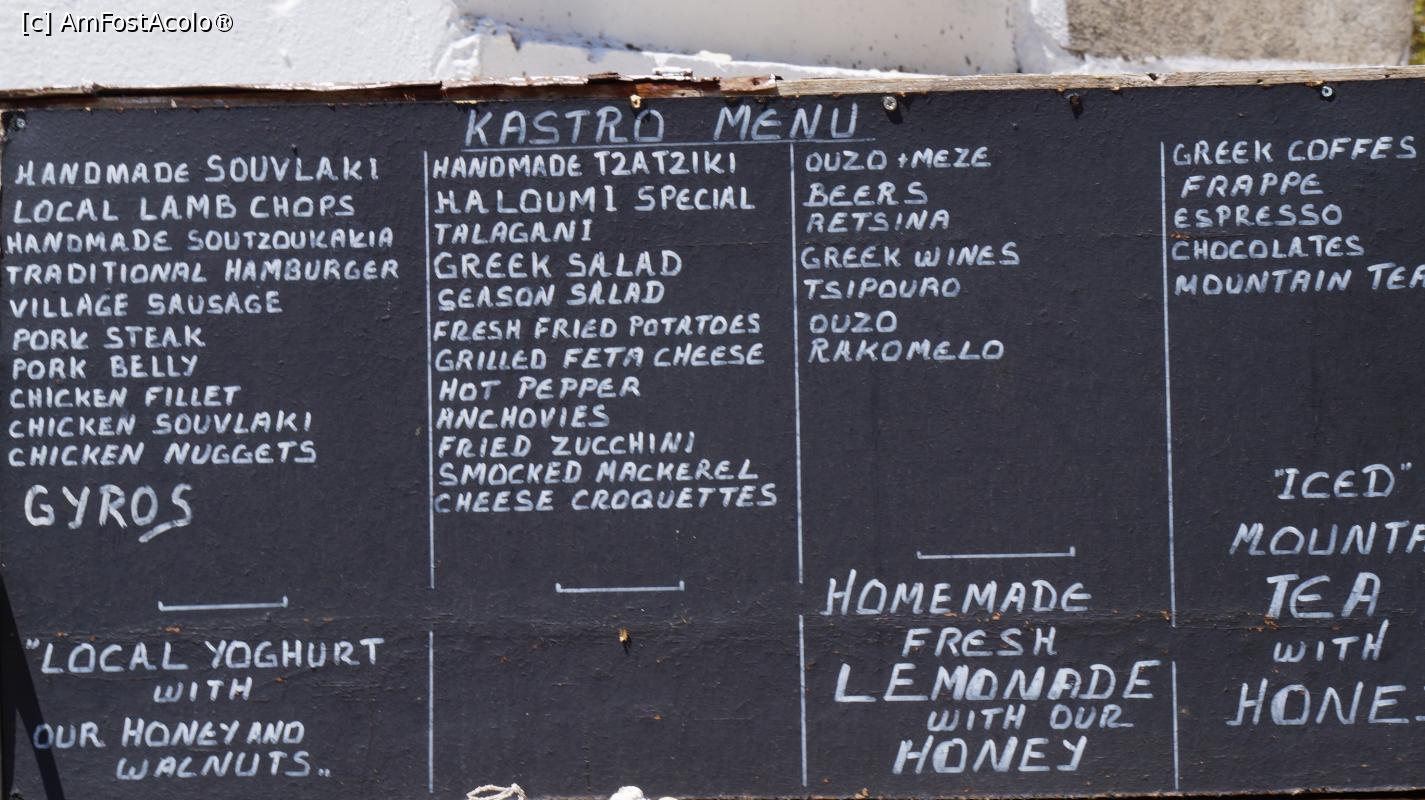 [c] AmFostAcolo®
KASTRO MENU
HANDMADE SOUVLAKI
LOCAL LAMB CHOPS
HANDMADE SOUTZOUKAKIA
TRADITIONAL HAMBURGER
VILLAGE SAUSAGE
PORK STEAK
PORK BELLY
CHICKEN FILLET
CHICKEN SOUVLAKI
CHICKEN NUGGETS
GYROS
"LOCAL YOGHURT
WITH
OUR HONEY AND
WALNUTS..
HANDMADE TZATZIKI
HALOUMI SPECIAL
TALAGANI
GREEK SALAD
SEASON SALAD
FRESH FRIED POTATOES
GRILLED FETA CHEESE
HOT PEPPER
ANCHOVIES
FRIED ZUCCHINI
SMOCKED MACKEREL
CHEESE CROQUETTES
OUZO + MEZE
BEERS
RETSINA
GREEK WINES
TSIPOURO
OUZO
RAKOMELO
HOMEMADE
FRESH
LEMONADE
WITH OUR
HONEY
GREEK COFFES
FRAPPE
ESPRESSO
CHOCOLATES
MOUNTAIN TEA
"ICED"
MOUNTA
TEA
WITH
HONE